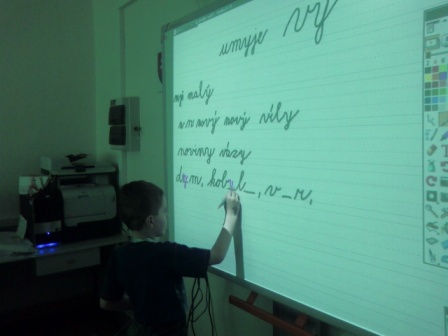 umyje vy
malý
nový nový víly
noviny vázy
dym, kobyl_, v_r,